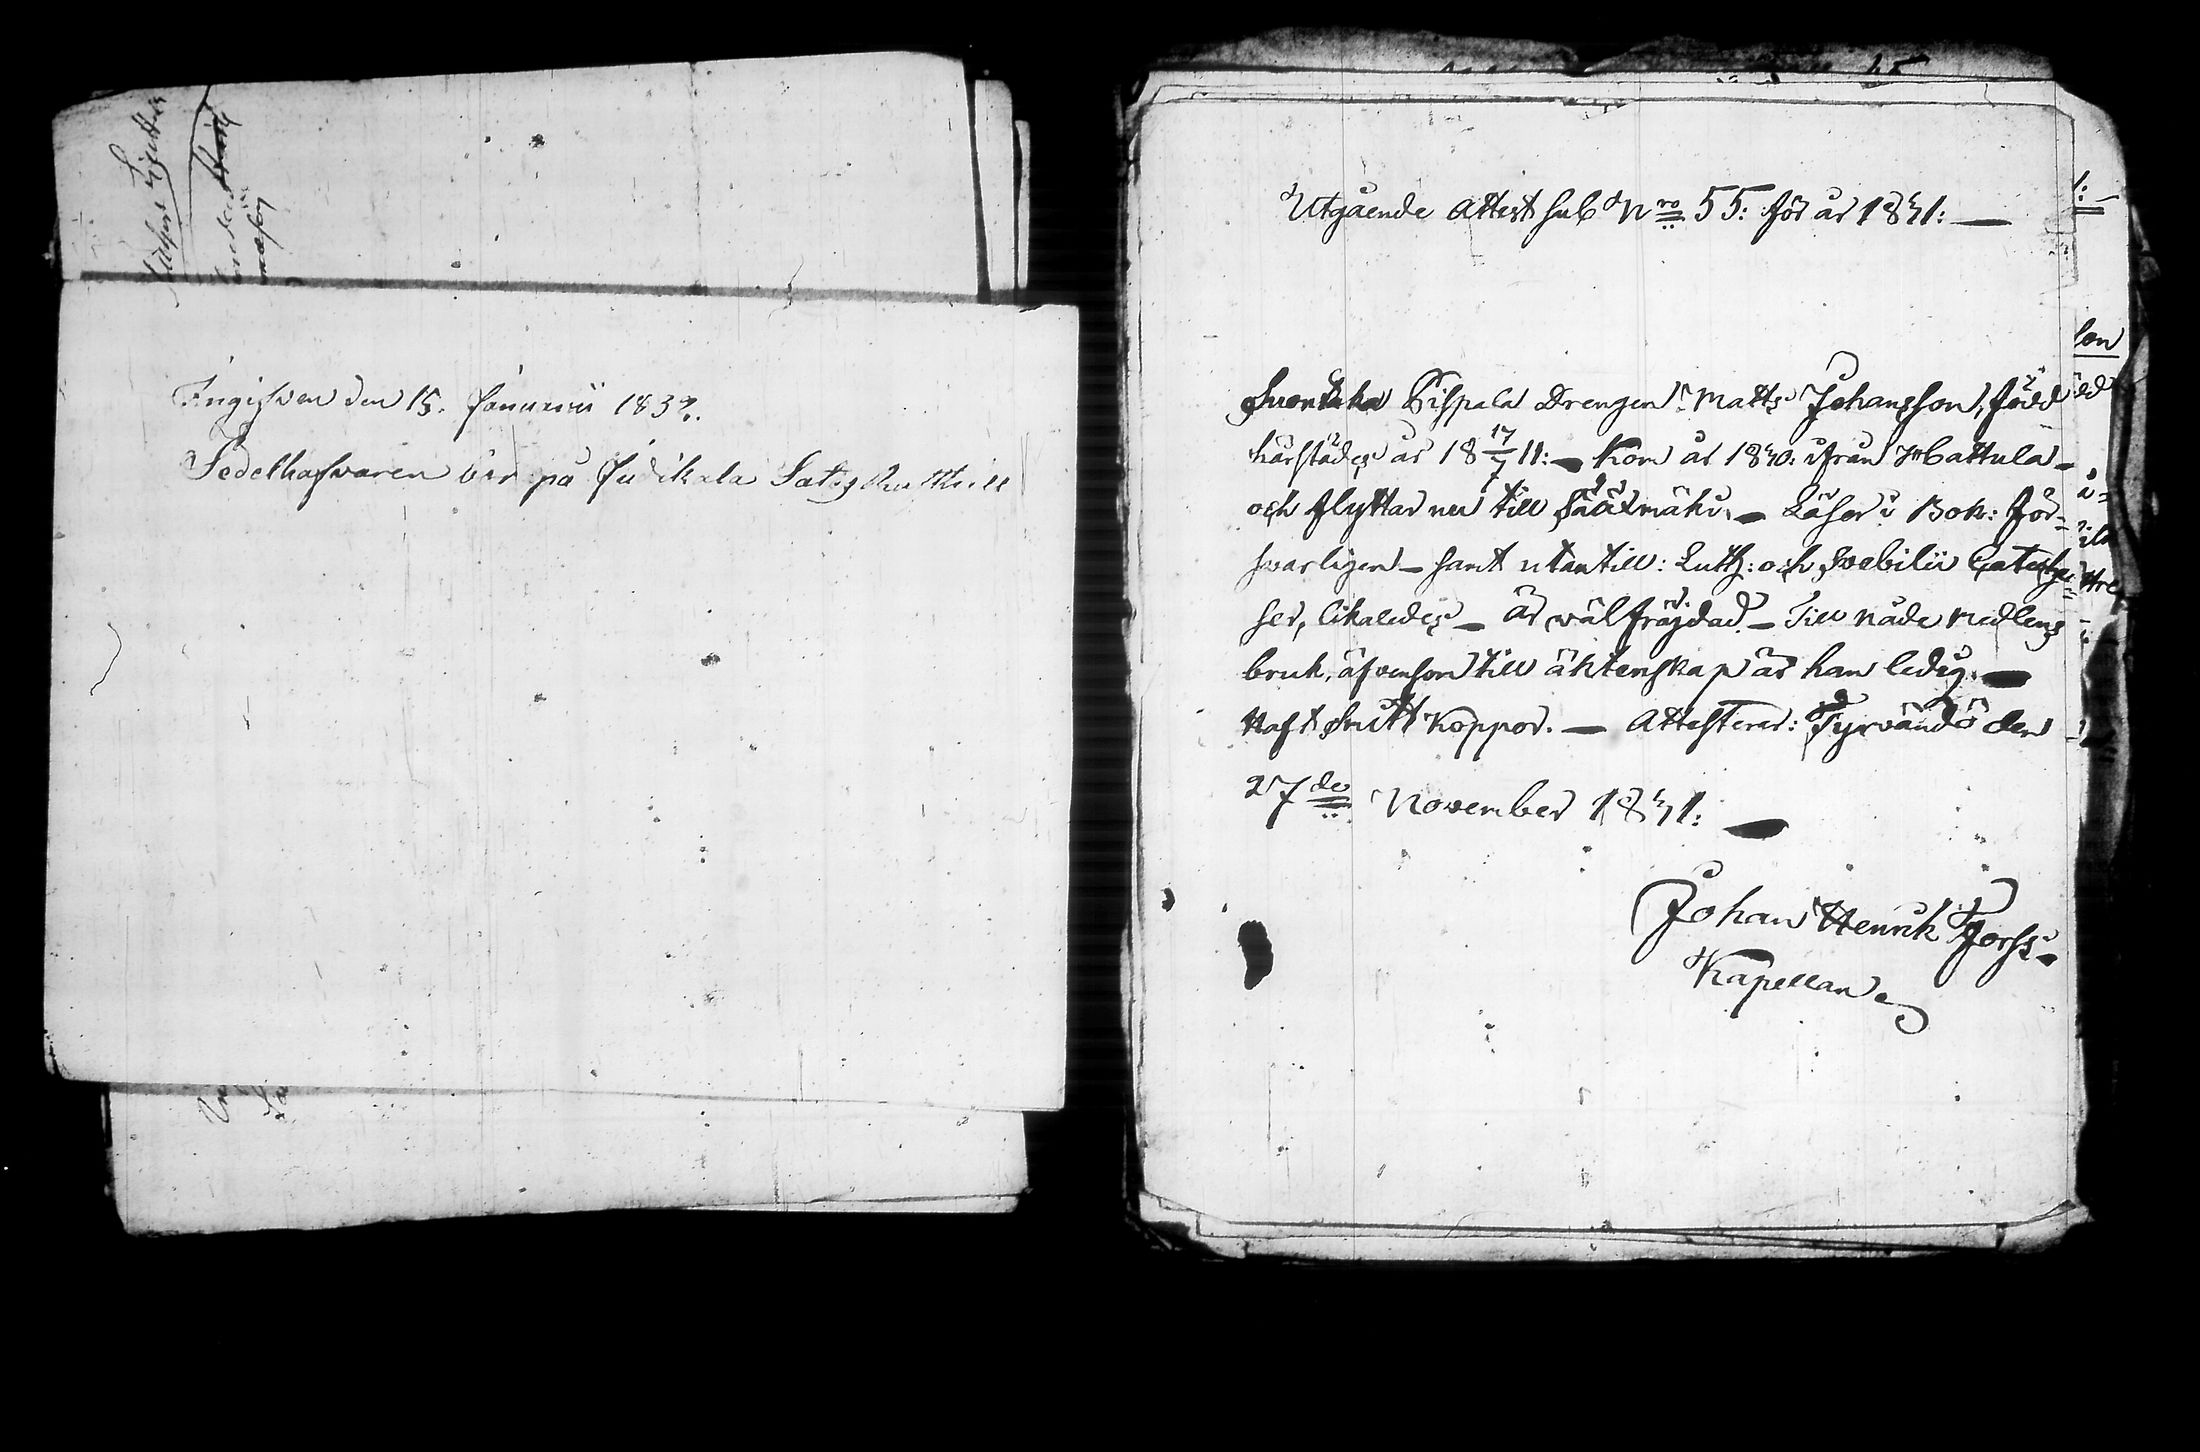 Ingifven den 15. Januarii 183
Sedelhafvaren bor på Judikala
Utgående Attest sub Nro 55: för år 1841:
Suontaka Pispala Drengen Matts Johansson, född
härstädes år 18 17/7 11: — Kom år 1840: ifrån Hattula —
och flyttar nu till Sääxmäki. — Läser i Bok: för=
svarligen — samt utantill: Luth: och Svebilii Cateche=
ser, likaledes — är wälfrägdad. — Till nåde medlens
bruk, äfvensom till äktenskap är han ledig. —
Haft Smitt Koppor. — Attesterar: Tyrvändö den
27de November 1841: —
Johan Henrik Forss —
Kapellan